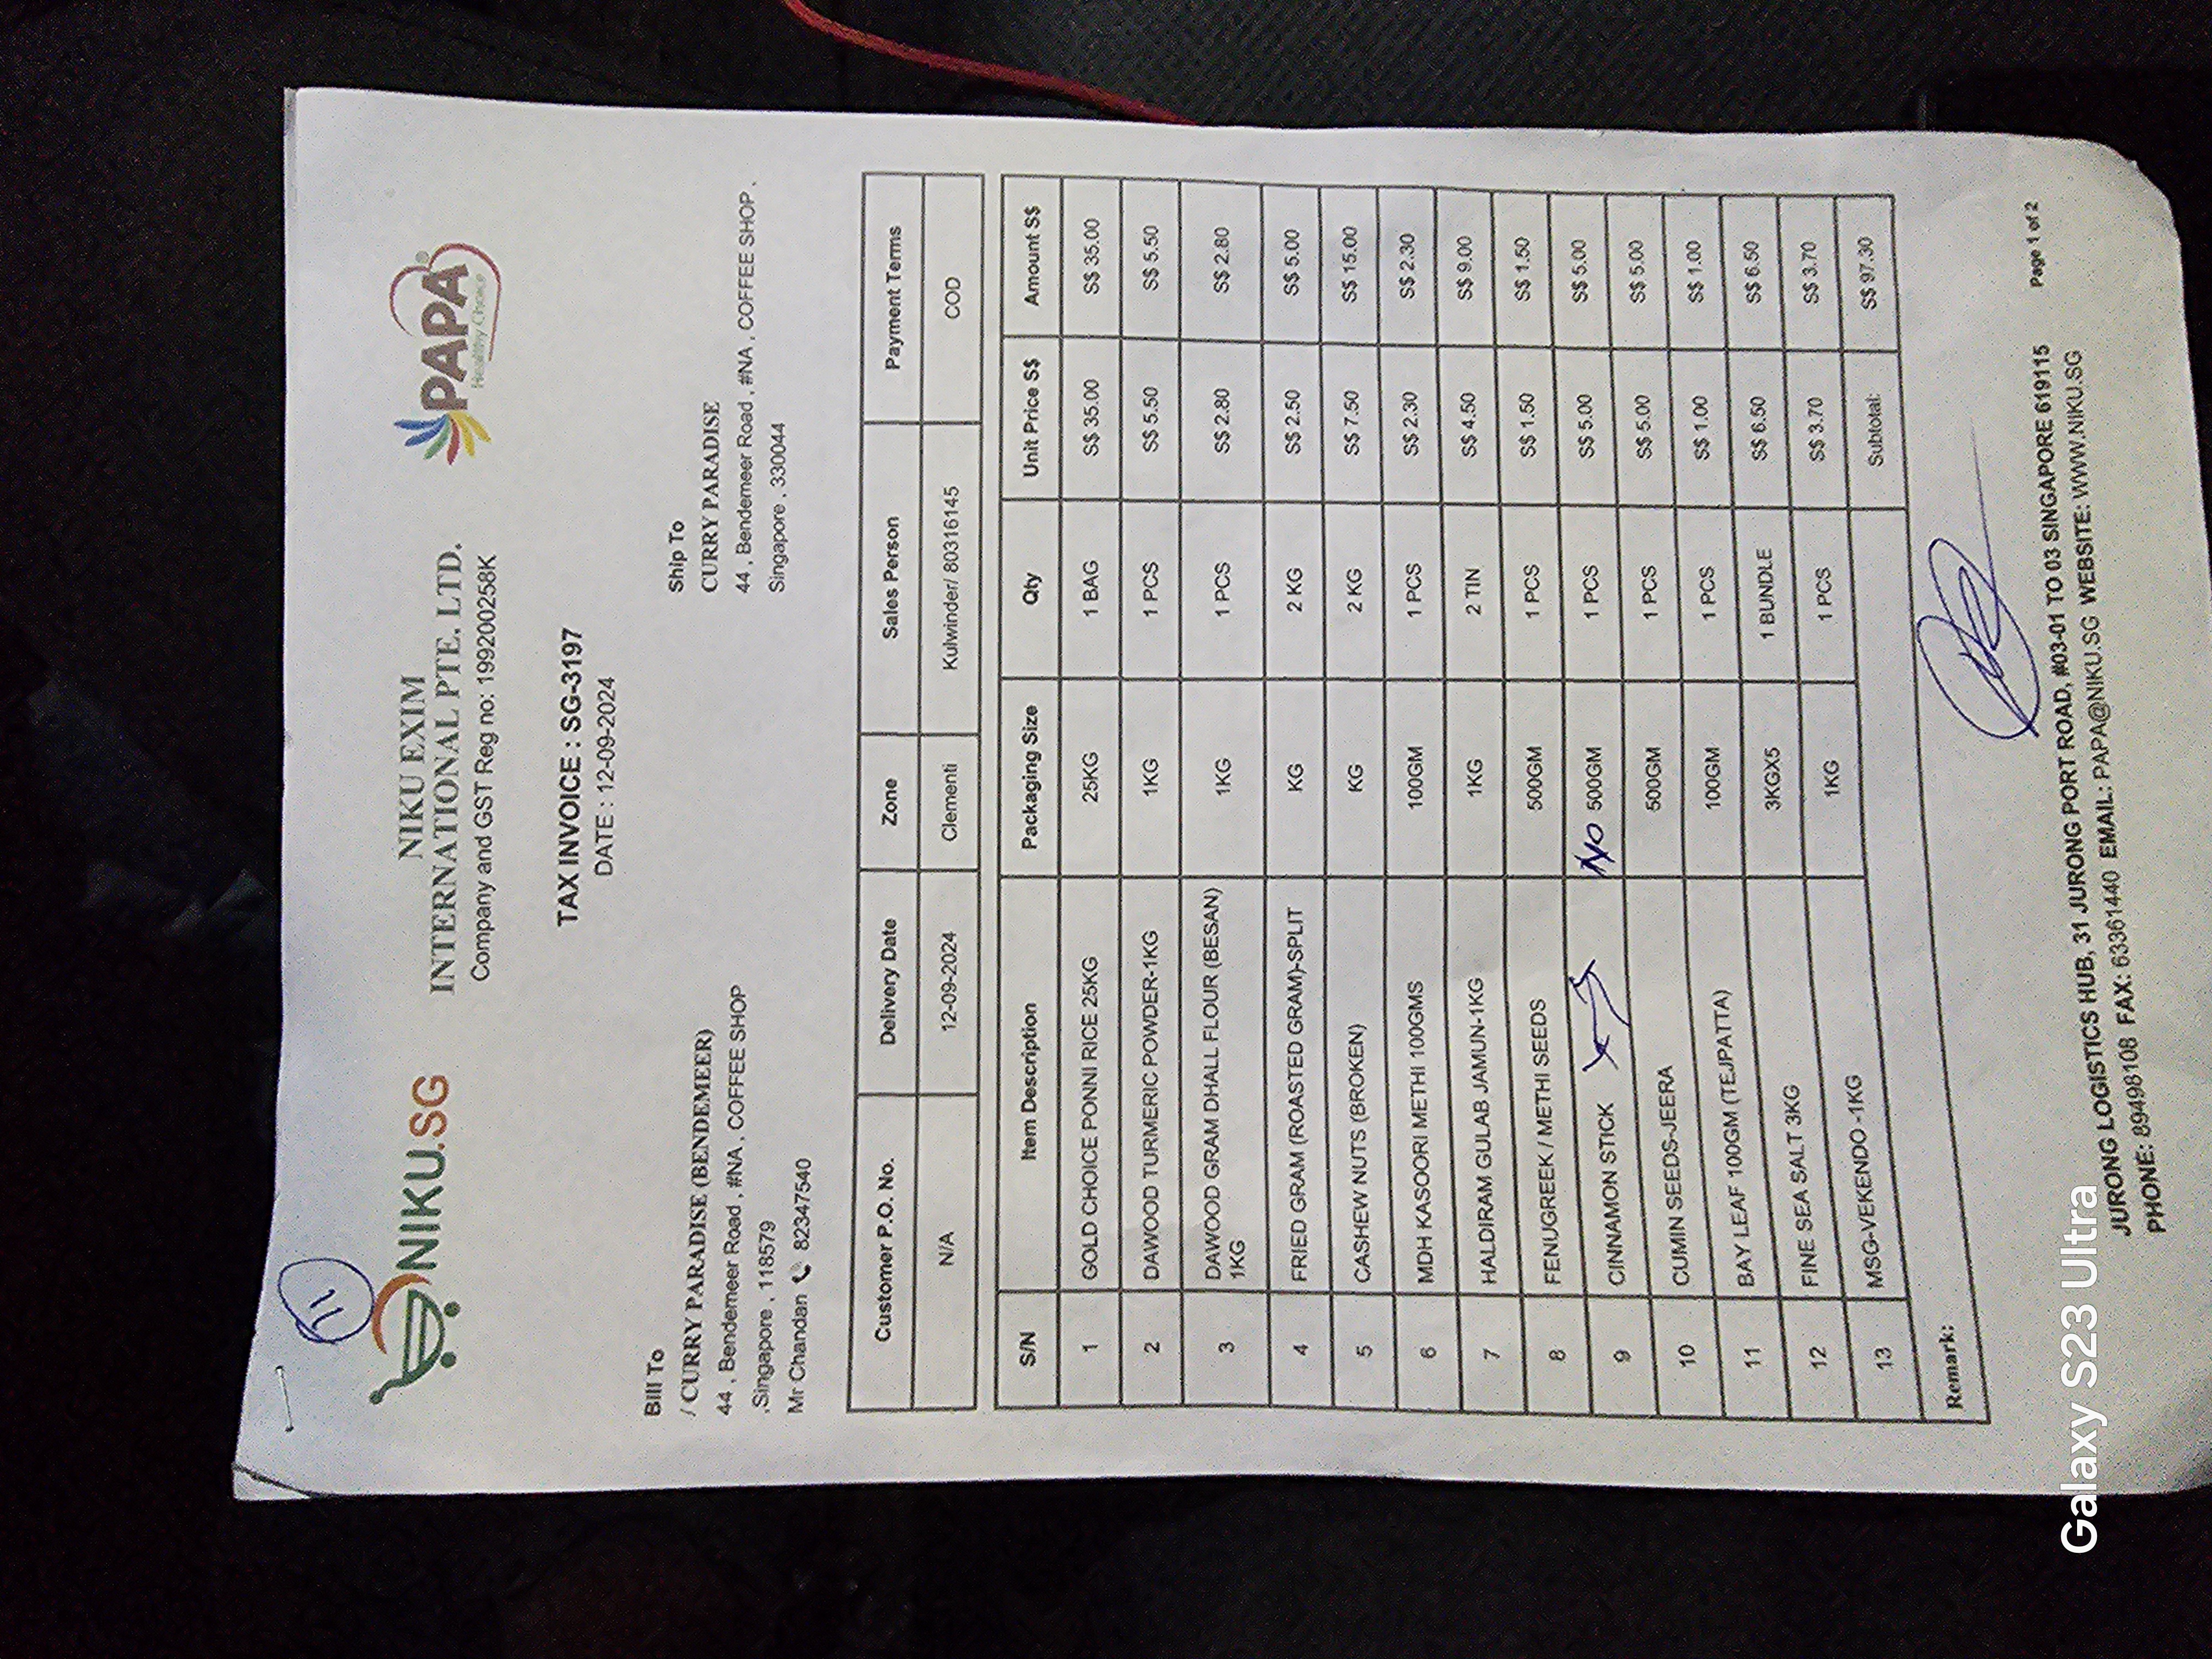 11
NIKU.SG
NIKU EXIM
INTERNATIONAL PTE. LTD.
Company and GST Reg no: 199200258K
PAPA®
Healthy Choice
TAX INVOICE : SG-3197
DATE : 12-09-2024
Bill To
/ CURRY PARADISE (BENDEMEER)
44 , Bendemeer Road , #NA , COFFEE SHOP
,Singapore , 118579
Mr Chandan 82347540
Ship To
CURRY PARADISE
44 , Bendemeer Road , #NA , COFFEE SHOP ,
Singapore , 330044
Customer P.O. No. Delivery Date Zone Sales Person Payment Terms
N/A 12-09-2024 Clementi Kulwinder/ 80316145 COD
S/N Item Description Packaging Size Qty Unit Price S$ Amount S$
1 GOLD CHOICE PONNI RICE 25KG 25KG 1 BAG S$ 35.00 S$ 35.00
2 DAWOOD TURMERIC POWDER-1KG 1KG 1 PCS S$ 5.50 S$ 5.50
3 DAWOOD GRAM DHALL FLOUR (BESAN) 1KG 1 PCS S$ 2.80 S$ 2.80
1KG
4 FRIED GRAM (ROASTED GRAM)-SPLIT KG 2 KG S$ 2.50 S$ 5.00
5 CASHEW NUTS (BROKEN) KG 2 KG S$ 7.50 S$ 15.00
6 MDH KASOORI METHI 100GMS 100GM 1 PCS S$ 2.30 S$ 2.30
7 HALDIRAM GULAB JAMUN-1KG 1KG 2 TIN S$ 4.50 S$ 9.00
8 FENUGREEK / METHI SEEDS 500GM 1 PCS S$ 1.50 S$ 1.50
9 CINNAMON STICK NO 500GM 1 PCS S$ 5.00 S$ 5.00
10 CUMIN SEEDS-JEERA 500GM 1 PCS S$ 5.00 S$ 5.00
11 BAY LEAF 100GM (TEJPATTA) 100GM 1 PCS S$ 1.00 S$ 1.00
12 FINE SEA SALT 3KG 3KGX5 1 BUNDLE S$ 6.50 S$ 6.50
13 MSG-VEKENDO -1KG 1KG 1 PCS S$ 3.70 S$ 3.70
Subtotal: S$ 97.30
Remark:
Page 1 of 2
JURONG LOGISTICS HUB, 31 JURONG PORT ROAD, #03-01 TO 03 SINGAPORE 619115
PHONE: 89498108 FAX: 63361440 EMAIL: PAPA@NIKU.SG WEBSITE: WWW.NIKU.SG
Galaxy S23 Ultra